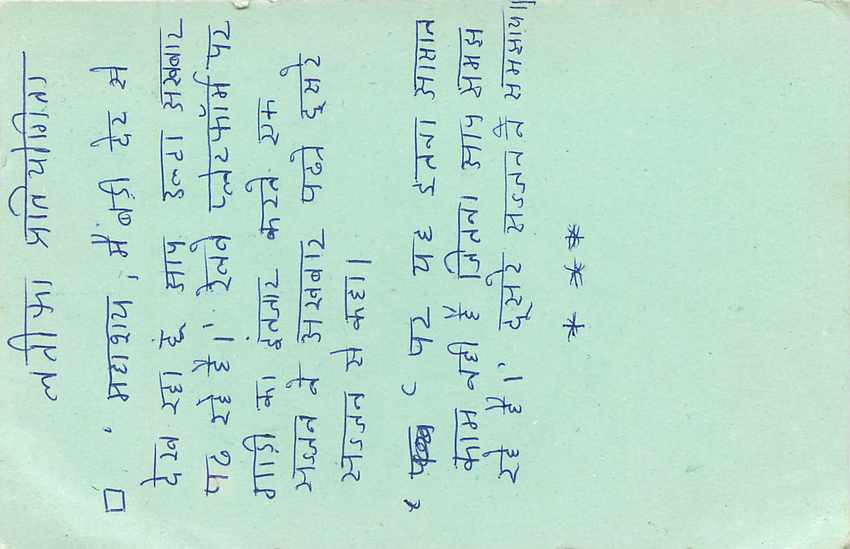 लतीफा प्रतियोगिता
□ ' महाशय, मैं बड़ी देर से
देख रहा हूँ आप उल्टा अखबार
पढ रहे है।' रेलवे प्लेटफॉर्म पर
गाड़ी का इंतजार करते एक
सज्जन ने अखबार पढते दूसरे
सज्जन से कहा।
' पर यह इतना आसान
काम नही है जितना आप समझ
रहे है।' दूसरे सज्जन ने समझाया॥
* * *